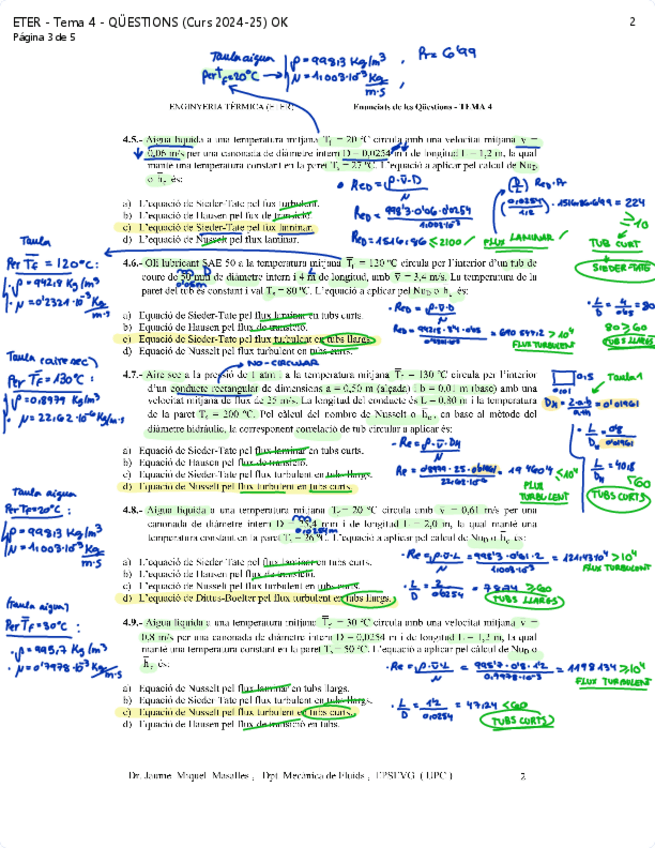 ETER - Tema 4 - QÜESTIONS (Curs 2024-25) OK
2
Página 3 de 5
Taula aigua
Per T_F=20ºC → ρ = 998'3 Kg/m³ , Pr = 6'99
μ = 1'003·10⁻³ Kg/m·s
ENGINYERIA TÈRMICA (ETER)
Enunciats de les Qüestions - TEMA 4
4.5.- Aigua líquida a una temperatura mitjana T_f = 20 ºC circula amb una velocitat mitjana v =
0,06 m/s per una canonada de diàmetre intern D = 0,0254 m i de longitud L = 1,2 m, la qual
manté una temperatura constant en la paret T_s = 27 ºC. L'equació a aplicar pel càlcul de Nu_D
o h_c és:
a) L'equació de Sieder-Tate pel flux turbulent.
b) L'equació de Hausen pel flux de transició.
c) L'equació de Sieder-Tate pel flux laminar.
d) L'equació de Nusselt pel flux laminar.
Re_D = ρ·v·D / μ
Re_D = 998'3·0'06·0'0254 / 1'003·10⁻³
Re_D = 1516'86 ≤ 2100 / FLUX LAMINAR /
(D/L) Re_D·Pr
(0'0254/1'2)·1516'86·6'99 = 224
≥ 10
TUB CURT
SIEDER-TATE
Taula
Per T_F = 120ºC:
ρ = 942'8 Kg/m³
μ = 0'2321·10⁻³ Kg/m·s
4.6.- Oli lubricant SAE 50 a la temperatura mitjana T_f = 120 ºC circula per l'interior d'un tub de
coure de 50 mm de diàmetre intern i 4 m de longitud, amb v = 3,4 m/s. La temperatura de la
0'05m
paret del tub és constant i val T_s = 80 ºC. L'equació a aplicar pel Nu_D o h_c és:
a) Equació de Sieder-Tate pel flux laminar en tubs curts.
b) Equació de Hausen pel flux de transició.
c) Equació de Sieder-Tate pel flux turbulent en tubs llargs.
d) Equació de Nusselt pel flux turbulent en tubs curts.
Re_D = ρ·v·D / μ
> 10⁴
FLUX TURBULENT
L/D = 4/0'05 = 80
80 ≥ 60
TUBS LLARGS
Taula (aire sec)
Per T_F = 130ºC :
ρ = 0'8979 Kg/m³
μ = 22'162·10⁻⁶ Kg/m·s
NO-CIRCULAR
4.7.- Aire sec a la pressió de 1 atm i a la temperatura mitjana T_f = 130 ºC circula per l'interior
d'un conducte rectangular de dimensions a = 0,50 m (alçada) i b = 0,01 m (base) amb una
velocitat mitjana de flux de 25 m/s. La longitud del conducte és L = 0,80 m i la temperatura
de la paret T_s = 200 ºC. Pel càlcul del nombre de Nusselt o h_c, en base al mètode del
diàmetre hidràulic, la corresponent correlació de tub circular a aplicar és:
a) Equació de Sieder-Tate pel flux laminar en tubs curts.
b) Equació de Hausen pel flux de transició.
c) Equació de Sieder-Tate pel flux turbulent en tubs llargs.
d) Equació de Nusselt pel flux turbulent en tubs curts.
0'5
0'01
Taula 1
D_H = 2·a·b / a+b = 0'01961
L/D_H = 0'8/0'01961
L/D_H = 40'8
< 60
TUBS CURTS
Re = ρ·v·D_H / μ
Re = 0'8979·25·0'01961 / 22'162·10⁻⁶
FLUX
TURBULENT
Taula aigua
Per T_F=20ºC:
ρ = 998'3 Kg/m³
μ = 1'003·10⁻³ Kg/m·s
4.8.- Aigua líquida a una temperatura mitjana T_f = 20 ºC circula amb v = 0,61 m/s per una
canonada de diàmetre intern D = 25,4 mm i de longitud L = 2,0 m, la qual manté una
0'0254m
temperatura constant en la paret T_s = 36 ºC. L'equació a aplicar pel càlcul de Nu_D o h_c és:
a) L'equació de Sieder-Tate pel flux laminar en tubs curts.
b) L'equació de Hausen pel flux de transició.
c) L'equació de Nusselt pel flux turbulent en tubs curts.
d) L'equació de Dittus-Boelter pel flux turbulent en tubs llargs.
Re = ρ·v·L / μ = 998'3·0'61·2 / 1'003·10⁻³ = 1'214·10⁶ > 10⁴
FLUX TURBULENT
L/D = 2/0'0254 = 78'74 ≥ 60
TUBS LLARGS
(taula aigua)
Per T_F=30ºC:
ρ = 995'7 Kg/m³
μ = 0'7978·10⁻³ Kg/m·s
4.9.- Aigua líquida a una temperatura mitjana T_f = 30 ºC circula amb una velocitat mitjana v =
0,8 m/s per una canonada de diàmetre intern D = 0,0254 m i de longitud L = 1,2 m, la qual
manté una temperatura constant en la paret T_s = 50 ºC. L'equació a aplicar pel càlcul de Nu_D o
h_c és:
a) Equació de Nusselt pel flux laminar en tubs llargs.
b) Equació de Sieder-Tate pel flux turbulent en tubs llargs.
c) Equació de Nusselt pel flux turbulent en tubs curts.
d) Equació de Hausen pel flux de transició en tubs.
Re = ρ·v·L / μ = 995'7·0'8·1'2 / 0'7978·10⁻³ = 1198134 ≥ 10⁴
FLUX TURBULENT
L/D = 1'2/0'0254 = 47'24 < 60
TUBS CURTS
Dr. Jaume Miquel Masalles , Dpt. Mecànica de Fluids , EPSEVG ( UPC )
2